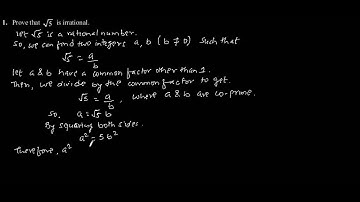 1. Prove that √5 is irrational.
Let √5 is a rational number.
So, we can find two integers a, b (b ≠ 0) such that
√5 = a/b
Let a & b have a common factor other than 1.
Then, we divide by the common factor to get.
√5 = a/b, where a & b are co-prime.
So, a = √5 b
By squaring both sides.
a² = 5b²
Therefore, a²